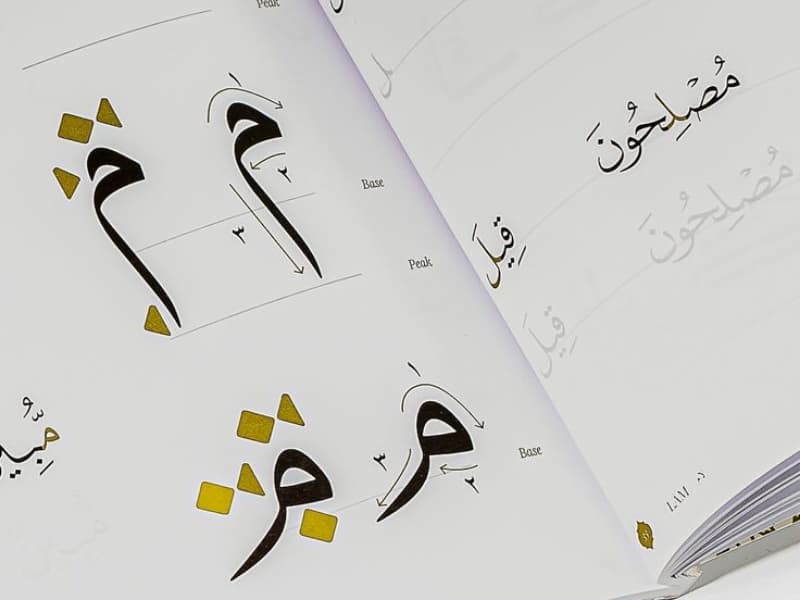 Peak
م
١
٢
٣
Base
Peak
م
١
٢
٣
Base
مُصْلِحُونَ
مُصْلِحُونَ
قِيلَ
قِيلَ
LAM